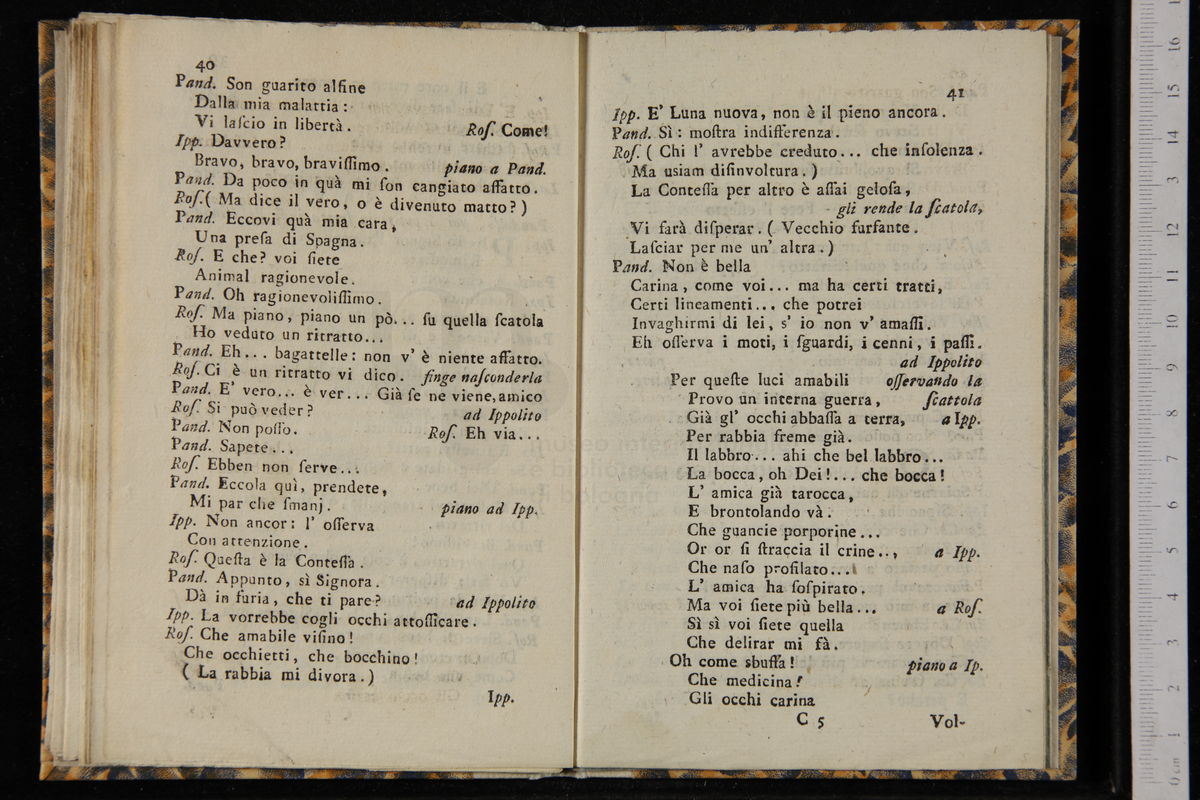 40
Pand. Son guarito alfine
Dalla mia malattia:
Vi laſcio in libertà. Roſ. Come!
Ipp. Davvero?
Bravo, bravo, braviſſimo. piano a Pand.
Pand. Da poco in quà mi ſon cangiato affatto.
Roſ. ( Ma dice il vero, o è divenuto matto? )
Pand. Eccovi quà mia cara,
Una preſa di Spagna.
Roſ. E che? voi ſiete
Animal ragionevole.
Pand. Oh ragionevoliſſimo.
Roſ. Ma piano, piano un pò... ſu quella ſcatola
Ho veduto un ritratto...
Pand. Eh... bagattelle: non v' è niente affatto.
Roſ. Ci è un ritratto vi dico. finge naſconderla
Pand. E' vero... è ver... Già ſe ne viene, amico
Roſ. Si può veder? ad Ippolito
Pand. Non poſſo. Roſ. Eh via...
Pand. Sapete...
Roſ. Ebben non ſerve...
Pand. Eccola quì, prendete,
Mi par che ſmanj. piano ad Ipp.
Ipp. Non ancor: l' oſſerva
Con attenzione.
Roſ. Queſta è la Conteſſa.
Pand. Appunto, sì Signora.
Dà in furia, che ti pare? ad Ippolito
Ipp. La vorrebbe cogli occhi attoſſicare.
Roſ. Che amabile viſino!
Che occhietti, che bocchino!
( La rabbia mi divora. )
Ipp.
41
Ipp. E' Luna nuova, non è il pieno ancora.
Pand. Sì: moſtra indifferenza.
Roſ. ( Chi l' avrebbe creduto... che inſolenza.
Ma usiam diſinvoltura. )
La Conteſſa per altro è aſſai geloſa,
gli rende la ſcatola,
Vi farà diſperar. ( Vecchio furfante.
Laſciar per me un' altra. )
Pand. Non è bella
Carina, come voi... ma ha certi tratti,
Certi lineamenti... che potrei
Invaghirmi di lei, s' io non v' amaſſi.
Eh oſſerva i moti, i ſguardi, i cenni, i paſſi.
ad Ippolito
Per queſte luci amabili oſſervando la
Provo un interna guerra, ſcattola
Già gl' occhi abbaſſa a terra, a Ipp.
Per rabbia freme già.
Il labbro... ahi che bel labbro...
La bocca, oh Dei!... che bocca!
L' amica già tarocca,
E brontolando và.
Che guancie porporine...
Or or ſi ſtraccia il crine.., a Ipp.
Che naſo profilato...
L' amica ha ſoſpirato.
Ma voi ſiete più bella... a Roſ.
Sì sì voi ſiete quella
Che delirar mi fà.
Oh come sbuffa! piano a Ip.
Che medicina!
Gli occhi carina
C 5 Vol-